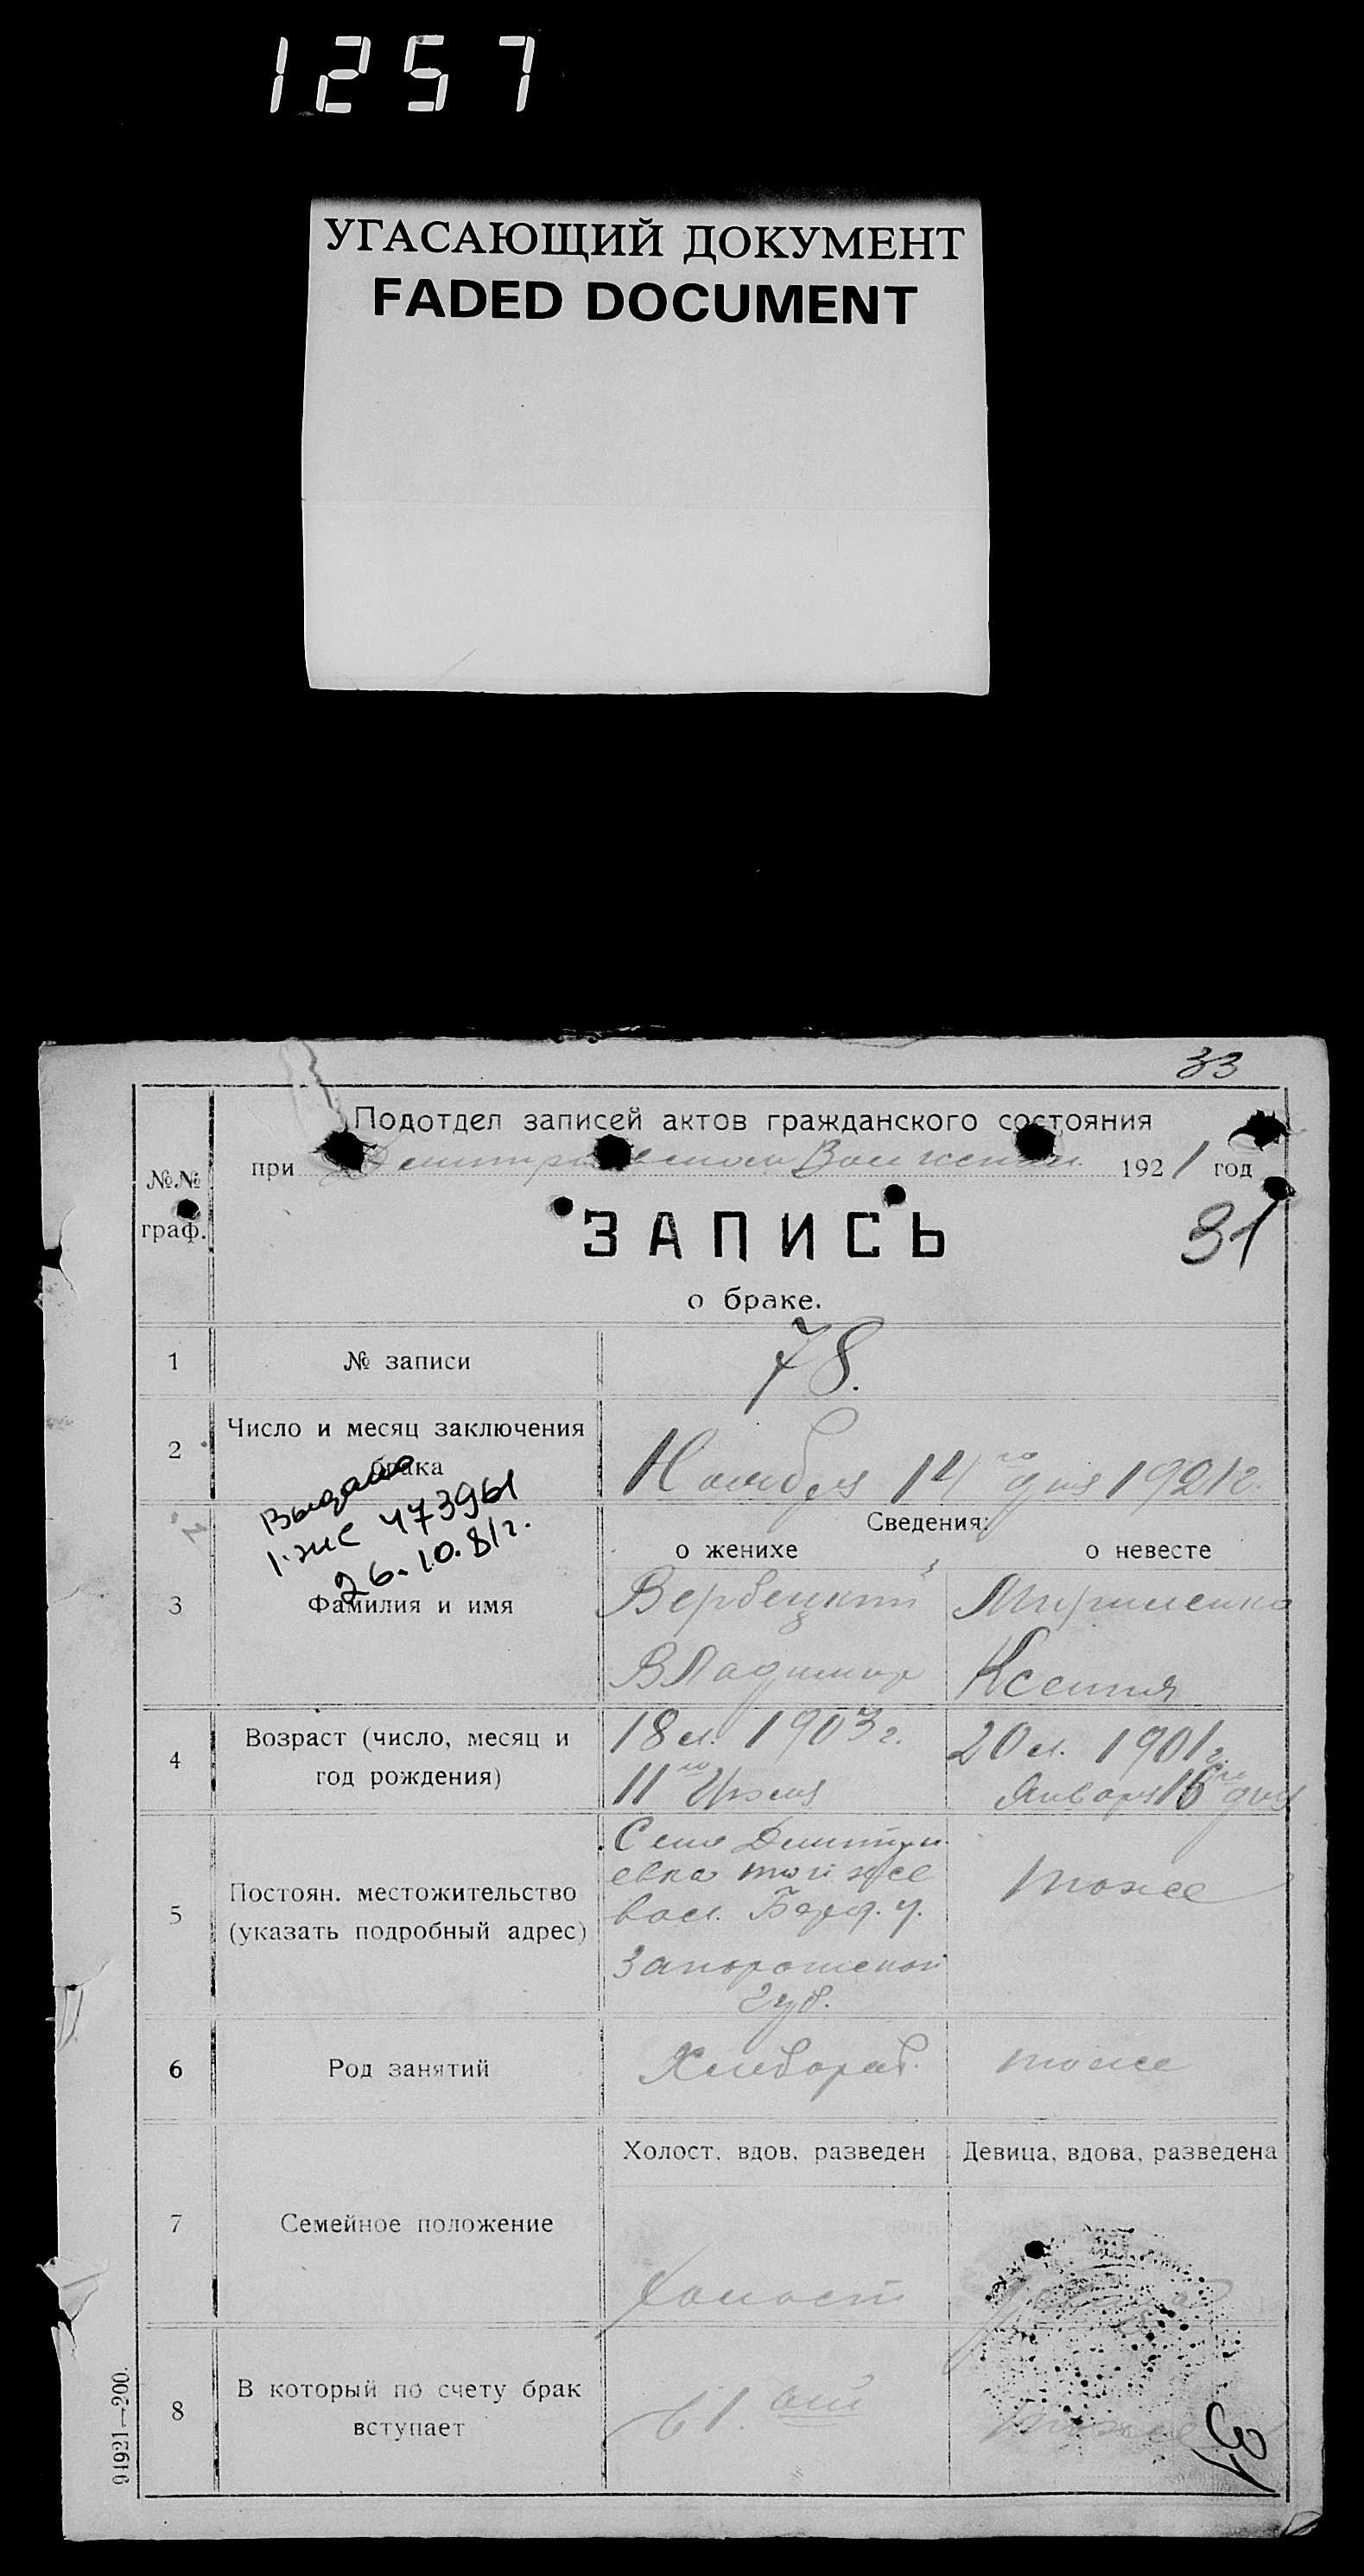 1257
УГАСАЮЩИЙ ДОКУМЕНТ
FADED DOCUMENT
33
Подотдел записей актов гражданского состояния
№№ граф.
при Волисполкоме 1921 год
ЗАПИСЬ
31
о браке.
1 № записи 78.
2 Число и месяц заключения брака
Ноября 14го дня 1921г.
Выдано
473961
26.10.81г.
Сведения:
о женихе о невесте
3 Фамилия и имя
Вербецкий
Владимир
Ксения
4 Возраст (число, месяц и год рождения)
18 л. 1903 г.
11го Июля
20 л. 1901 г.
Января 16го дня
5 Постоян. местожительство (указать подробный адрес)
Село Дмитри
евка той же
вол. Берд. у.
Запорожской
губ.
тоже
6 Род занятий
Хлебороб.
тоже
7 Семейное положение
Холост, вдов, разведен
Девица, вдова, разведена
Холост
8 В который по счету брак вступает
в 1.ый
тоже
91921—200.